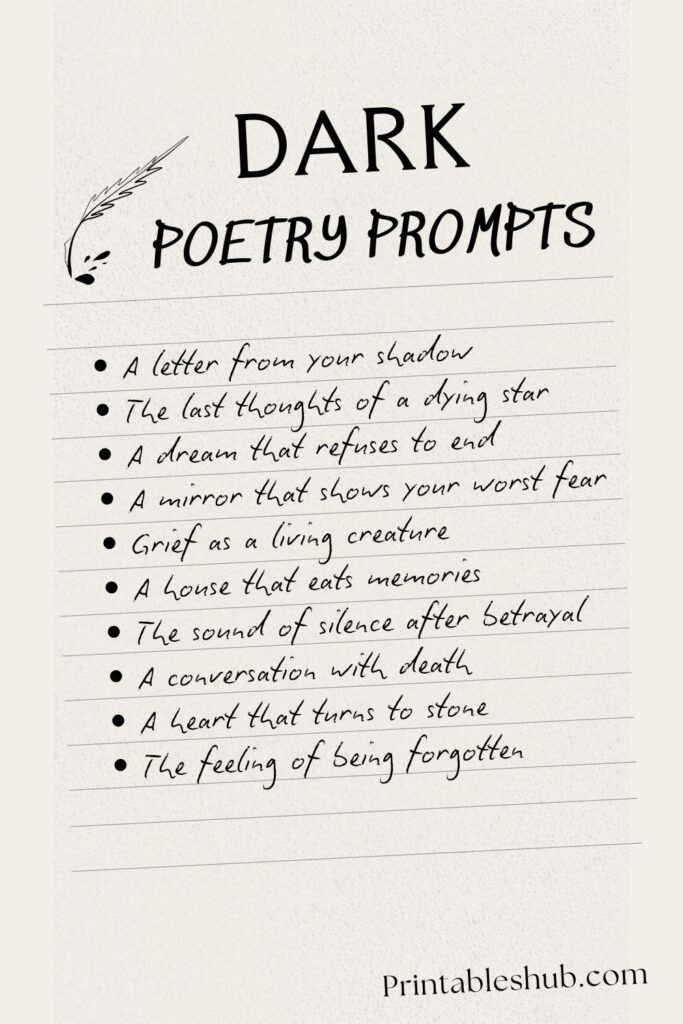 DARK
POETRY PROMPTS
• A letter from your shadow
• The last thoughts of a dying star
• A dream that refuses to end
• A mirror that shows your worst fear
• Grief as a living creature
• A house that eats memories
• The sound of silence after betrayal
• A conversation with death
• A heart that turns to stone
• The feeling of being forgotten
Printableshub.com